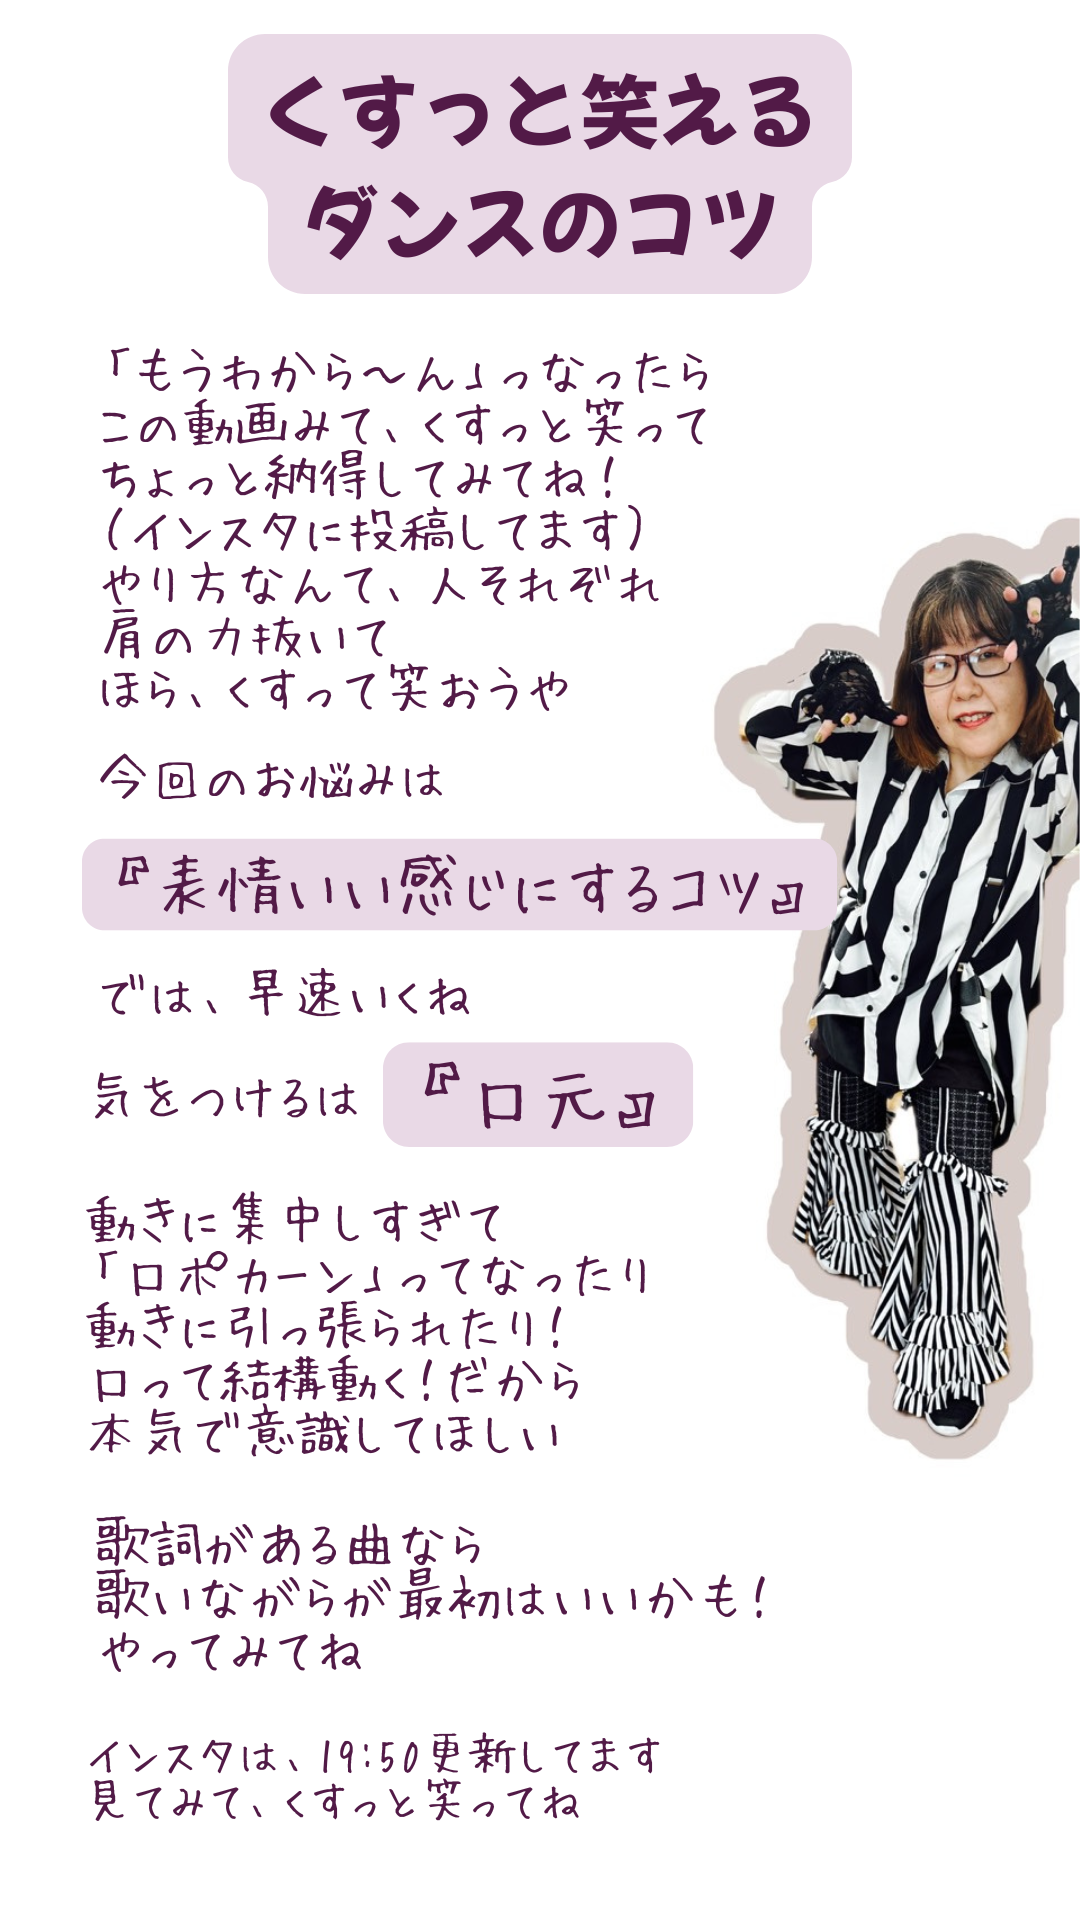 くすっと笑える
ダンスのコツ
「もうわから〜ん」っなったら
この動画みて、くすっと笑って
ちょっと納得してみてね！
（インスタに投稿してます）
やり方なんて、人それぞれ
肩の力抜いて
ほら、くすって笑おうや
今回のお悩みは
『表情いい感じにするコツ』
では、早速いくね
気をつけるは
『口元』
動きに集中しすぎて
「口ポカーン」ってなったり
動きに引っ張られたり！
口って結構動く！だから
本気で意識してほしい
歌詞がある曲なら
歌いながらが最初はいいかも！
やってみてね
インスタは、19:50更新してます
見てみて、くすっと笑ってね